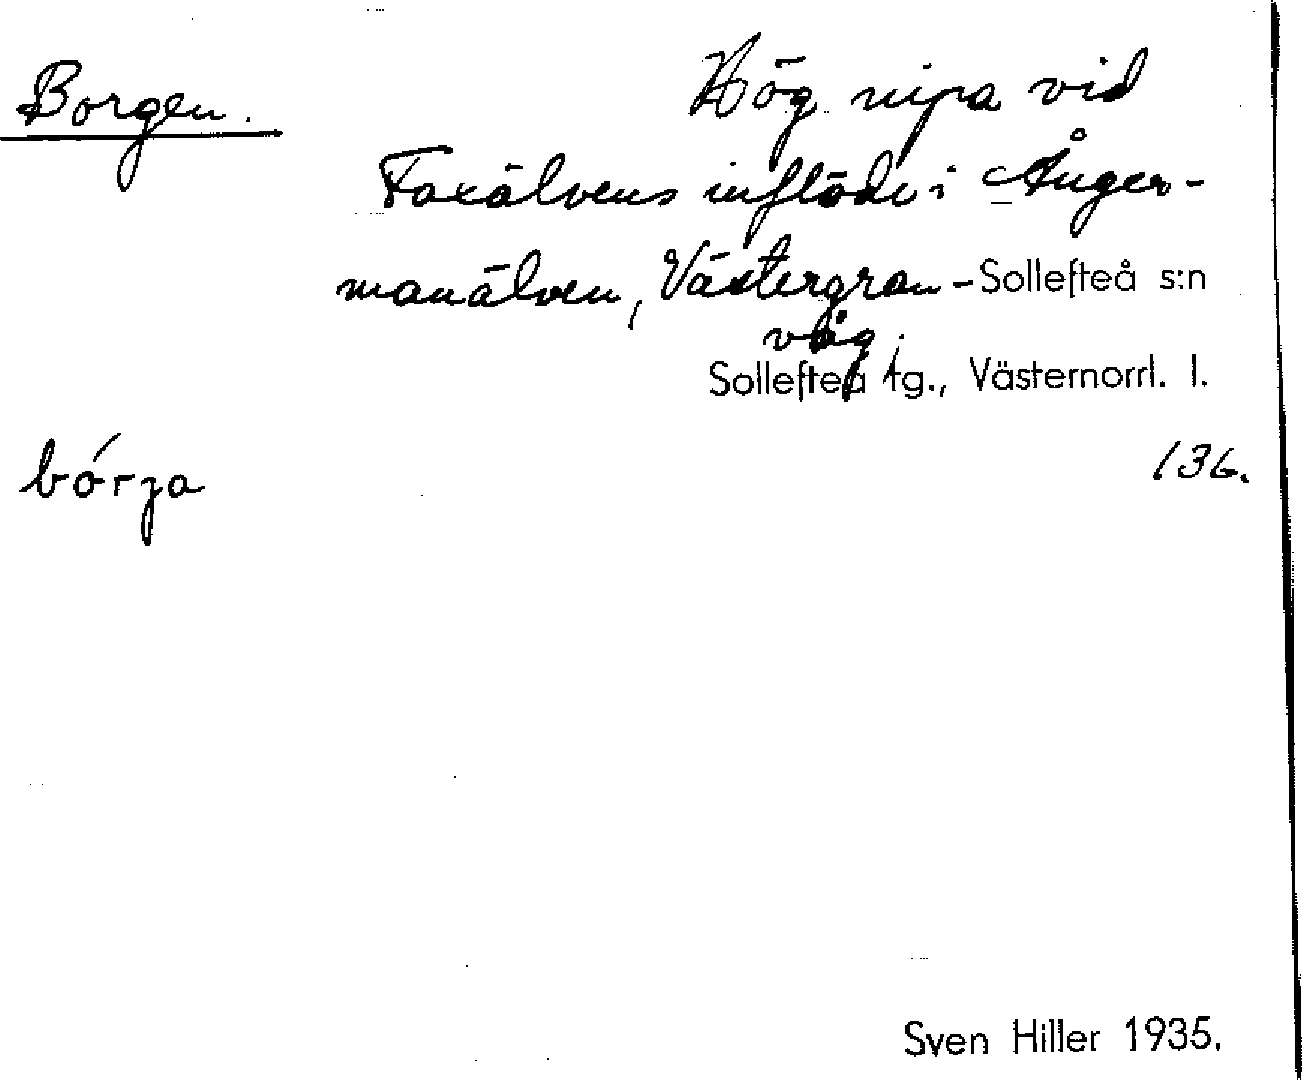 Borgen.
Hög nipa vid
Faxälvens inflöde i Ånger-
manälven, Västergran-
våg.
Sollefteå s:n
Sollefteå tg., Västernorrl. l.
136.
bórja
Sven Hiller 1935.